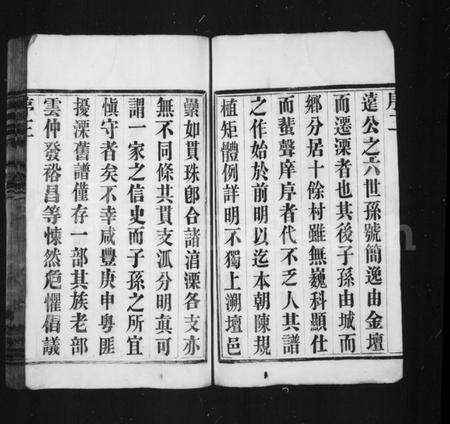 序二
達公之六世孫號簡逸由金壇
而遷溧者也其後子孫由城而
鄉分居十餘村雖無巍科顯仕
而蜚聲庠序者代不乏人其譜
之作始於前明以迄本朝陳規
植矩體例詳明不獨上溯壇邑
纍如貫珠郎合諸溧各支亦
無不同條其貫支派分明真可
謂一家之信史而子孫之所宜
慎守者矣不幸咸豐庚申粵匪
擾溧舊譜僅存一部其族老部
雲仲發裕昌等悚然危懼倡議
序二